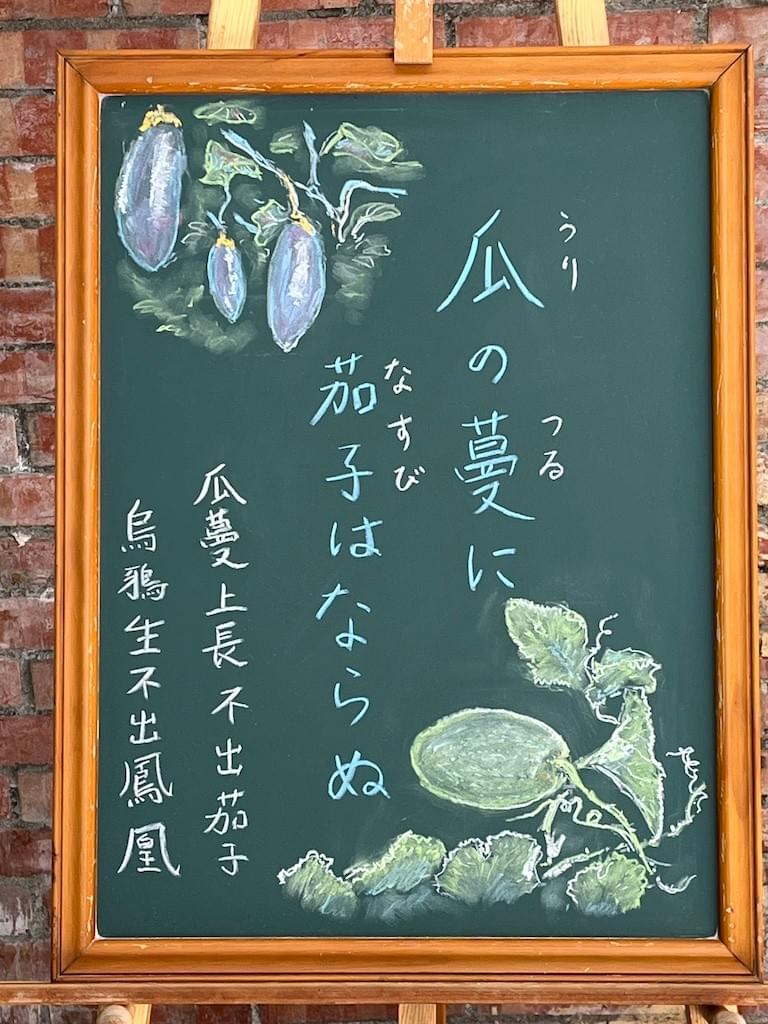 うり
瓜の蔓に
つる
なすび
茄子はならぬ
瓜蔓上長不出茄子
烏鴉生不出鳳凰